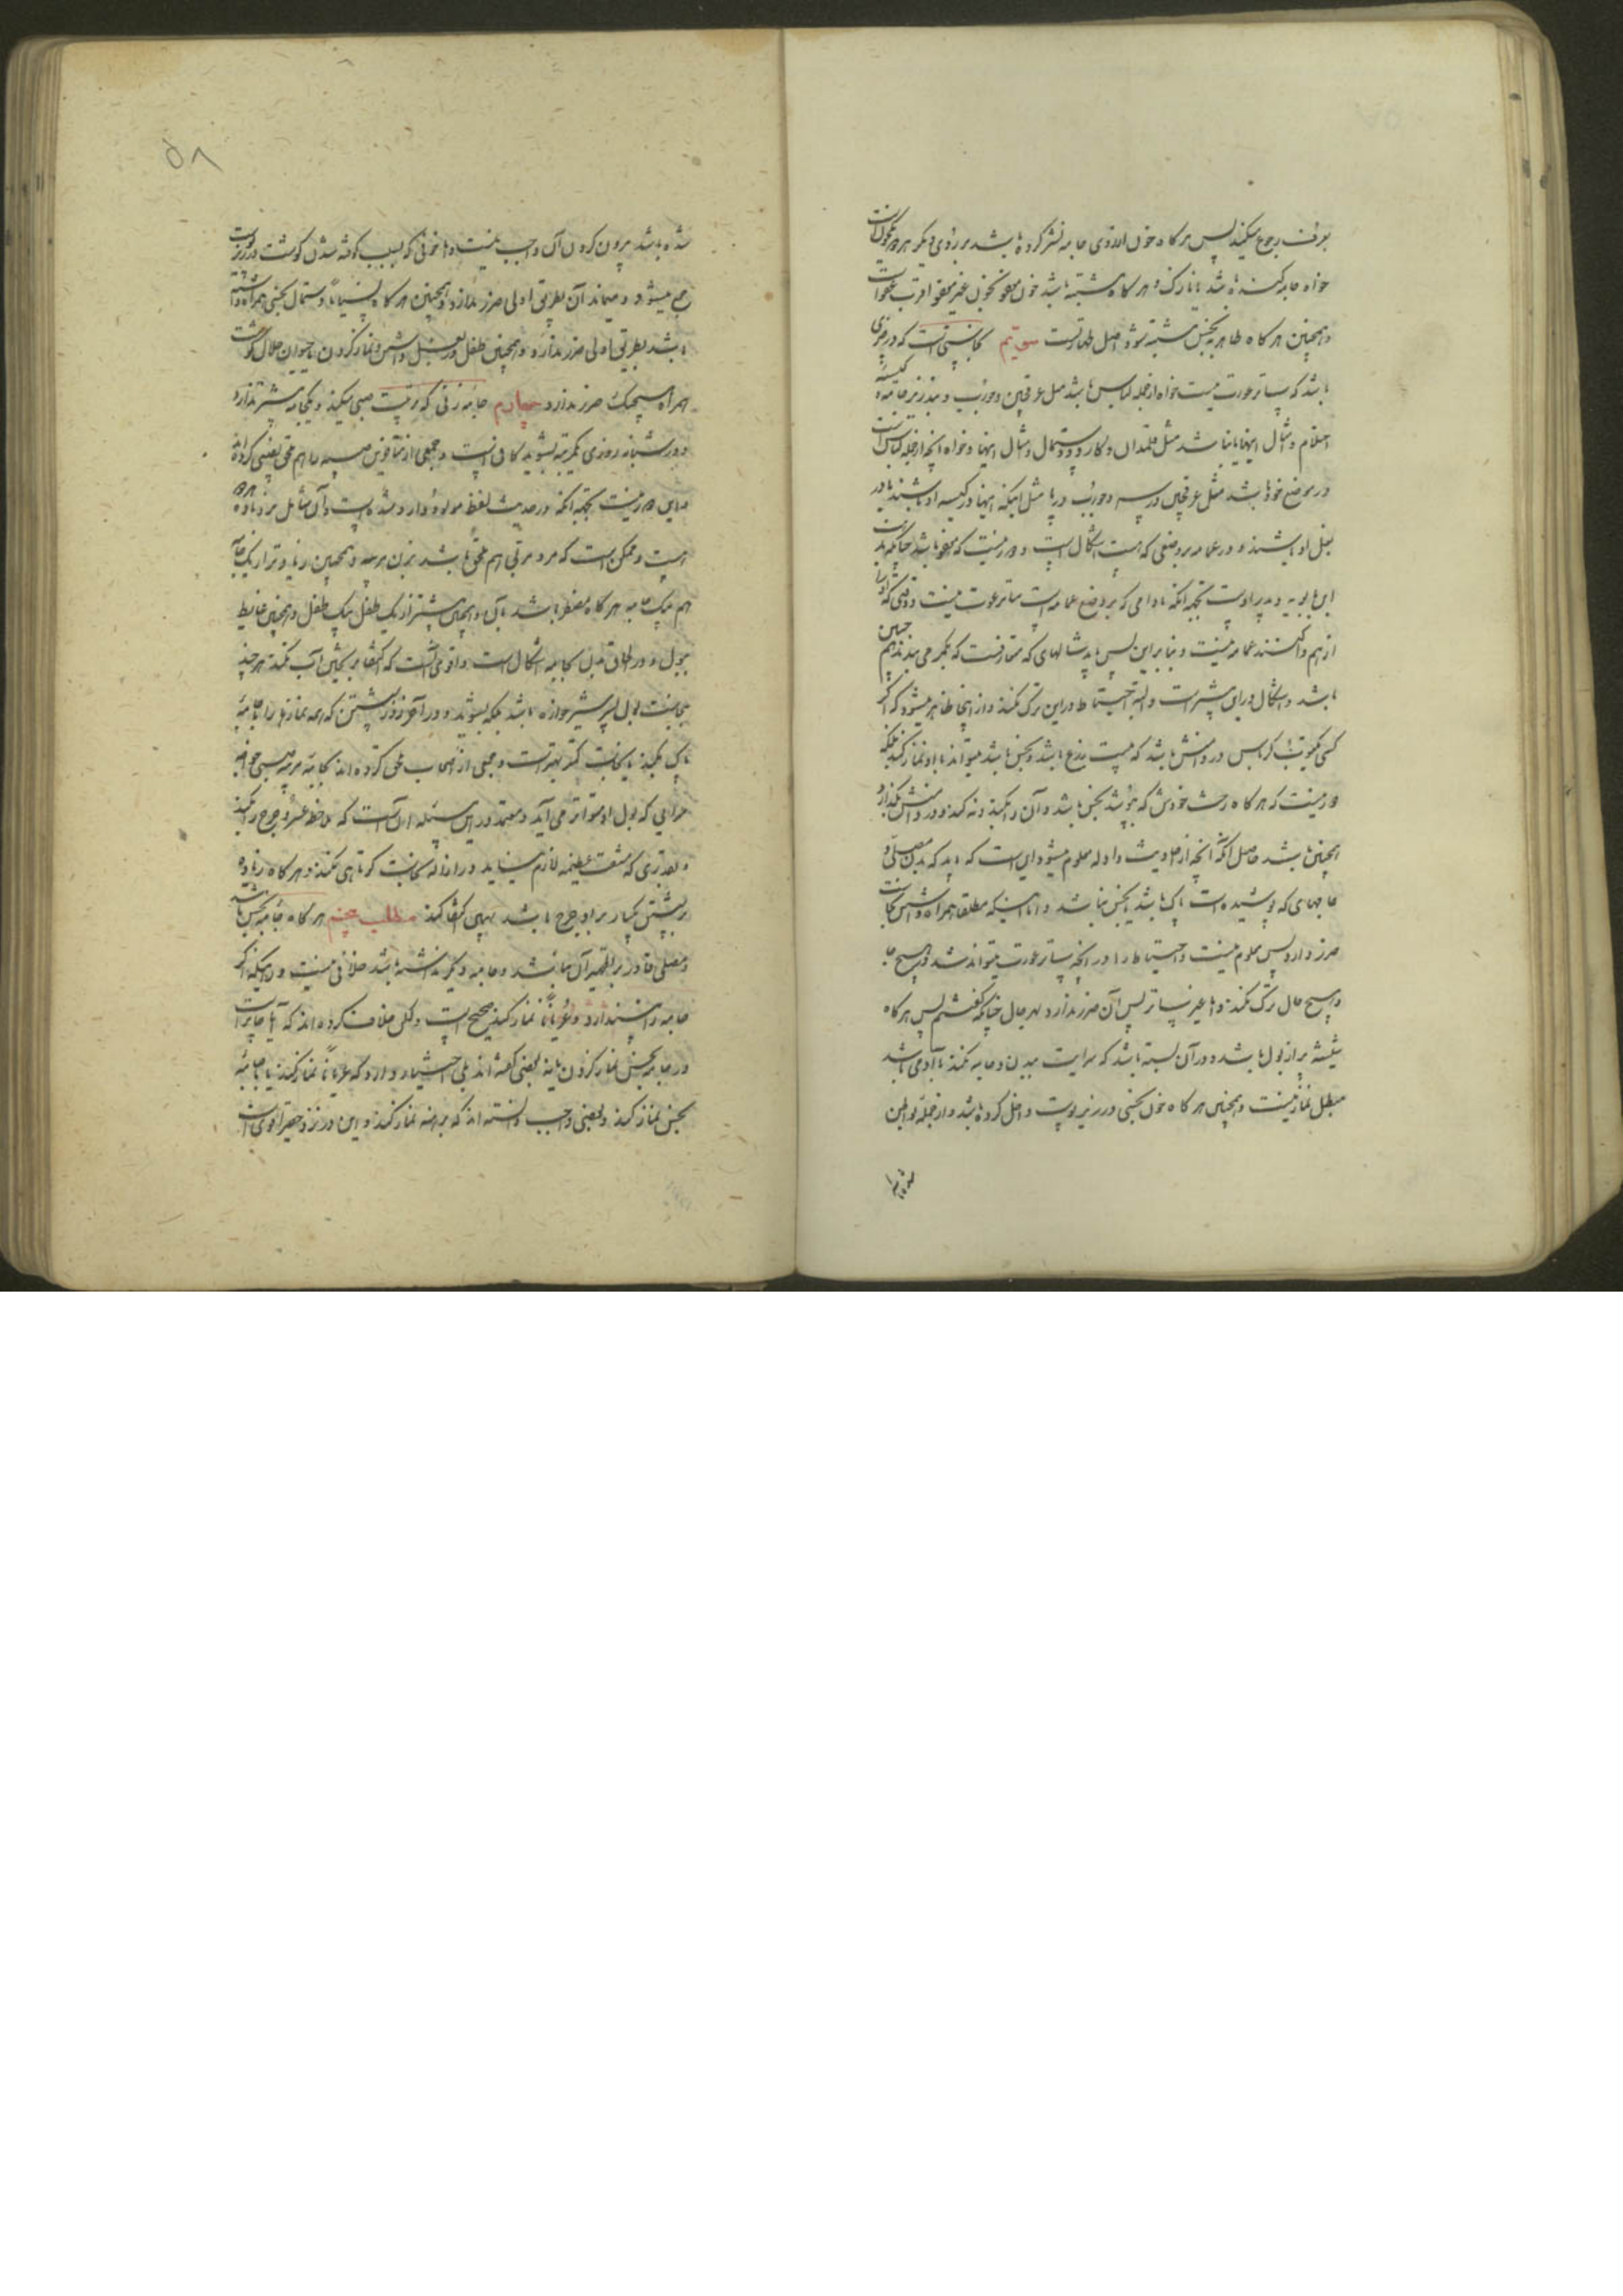 بعرف رجوع میکنند پس هر گاه خون از روی جامه نشر کرده باشد بر روی دیگر هر دو یکخون است
خواه جامه کنده باشد یا نازک و هر گاه مشتبه باشد خون معفو بخون غیر معفو اقرب عفو است
و همچنین هر گاه طاهر به نجس مشتبه شود اصل طهارتست سیّم نجاستی است که در چیزی
باشد که ساتر عورت نیست خواه از جمله لباس باشد مثل عرقچین و جورب و بند زیر جامه و کیسه
و امثال اینها یا نباشد مثل قلمدان و کارد و دستمال و امثال اینها و خواه آنچه از جمله لباس است
در موضع خود باشد مثل عرقچین در سر و جورب در پا مثل اینکه اینها در کیسه او باشند یا در
بغل او باشند و در عمامه بر وضعی که هست اشکال است و دور نیست که معفو باشد چنانکه مذهب
ابن بابویه و پدر اوست بجهة آنکه مادامی که بر وضع عمامه است ساتر عورت نیست و وقتی که او را
از هم واکنند عمامه نیست و بنا بر این پس باید شالهای که متعارفست که بکمر می بندند هم چنین
باشد و اشکال در این بیشتر است و البته احتیاط در این ترک نکنند و از اینجا ظاهر میشود که اگر
کسی یکتوب کرباس در دوشش باشد که بیست ذرع باشد و نجس باشد میتواند با او نماز کند بلکه
دور نیست که هر گاه رخت خودش که پوشد نجس باشد و آن را بکند و ته کند و در دوشش بگذارد
همچنین باشد حاصل آنکه آنچه از احادیث و ادله معلوم میشود این است که باید که بدن مصلی و
جامهای که پوشیده است پاک باشد و نجس نباشد و اما اینکه مطلقا همراه داشتن نجاست
ضرر دارد پس معلوم نیست و احتیاط را در آنچه ساتر عورت میتواند شد در هیچ جا
و هیچ حال ترک نکند و اما غیر ساتر پس آن ضرر ندارد بهر حال چنانکه گفتیم پس هر گاه
شیشه پر از بول باشد و در آن بسته باشد که سرایت ببدن و جامه نکند با آدمی باشد
مبطل نماز نیست و همچنین هر گاه خون نجسی در زیر پوست داخل کرده باشد و از جمله بواطن
شده باشد بیرون کردن آن واجب نیست و اما خونی که بسبب کوفته شدن گوشت در زیر پوست
جمع میشود و میماند آن بطریق اولی ضرر ندارد و همچنین هر گاه نسیاناً دستمال نجس همراه داشته
باشد بطریق اولی ضرر ندارد و همچنین طفل در بغل داشتن و نماز کردن یا حیوان حلال گوشت
همراه هیچیک ضرر ندارد چهارم جامه زنی که تربیت صبی میکند و یکجامه بیشتر ندارد
و در شبانه روزی یکمرتبه بشوید کافی است و جمعی از متأخرین صبیه را هم ملحق بصبی کرده اند
و این دور نیست بجهة آنکه در حدیث لفظ مولود وارد شده است و آن شامل نر و ماده هر دو
هست و ممکن است که مرد مربی هم ملحق باشد بزن مربیه و همچنین زیادتر از یک جامه
هم بیک جامه هر گاه مضطر باشد بآن و همچنین بیشتر از یک طفل بیک طفل و همچنین غایط
ببول و در الحاق بدن بجامه اشکال است و اقوی آنست که اکتفا بر ریختن آب نکند هر چند
نجاست بول پسر شیر خواره باشد بلکه بشوید و در آخر روز شستن که همه نمازها را با جامه
پاک بکند یا نجاست کمتر بهتر است و جمعی از اصحاب ملحق کرده اند بجامه مربیه صبی
مرادی که بول او متواتر می آید و معتمد در این مسئله این است که ملاحظه عسر و حرج را بکند
و بقدری که مشقت عظیمه لازم نیاید در ازاله نجاست کوتاهی نکند و هر گاه زیاده
بر شستن یکبار بر او حرج باشد بهمین اکتفا کند مطلب پنجم هر گاه جامه نجس باشد
و مصلی قادر بر تطهیر آن نباشد و جامه دیگر نداشته باشد خلافی نیست در اینکه اگر
جامه را بیندازد و عریاناً نماز کند صحیح است ولکن خلاف کرده اند که آیا جایز است
در جامه نجس نماز کردن یا نه بعضی گفته اند بلی اختیار دارد که عریاناً نماز کند یا با جامه
نجس نماز کند و بعضی واجب دانسته اند که برهنه نماز کند و این در نزد حقیر اقوی است